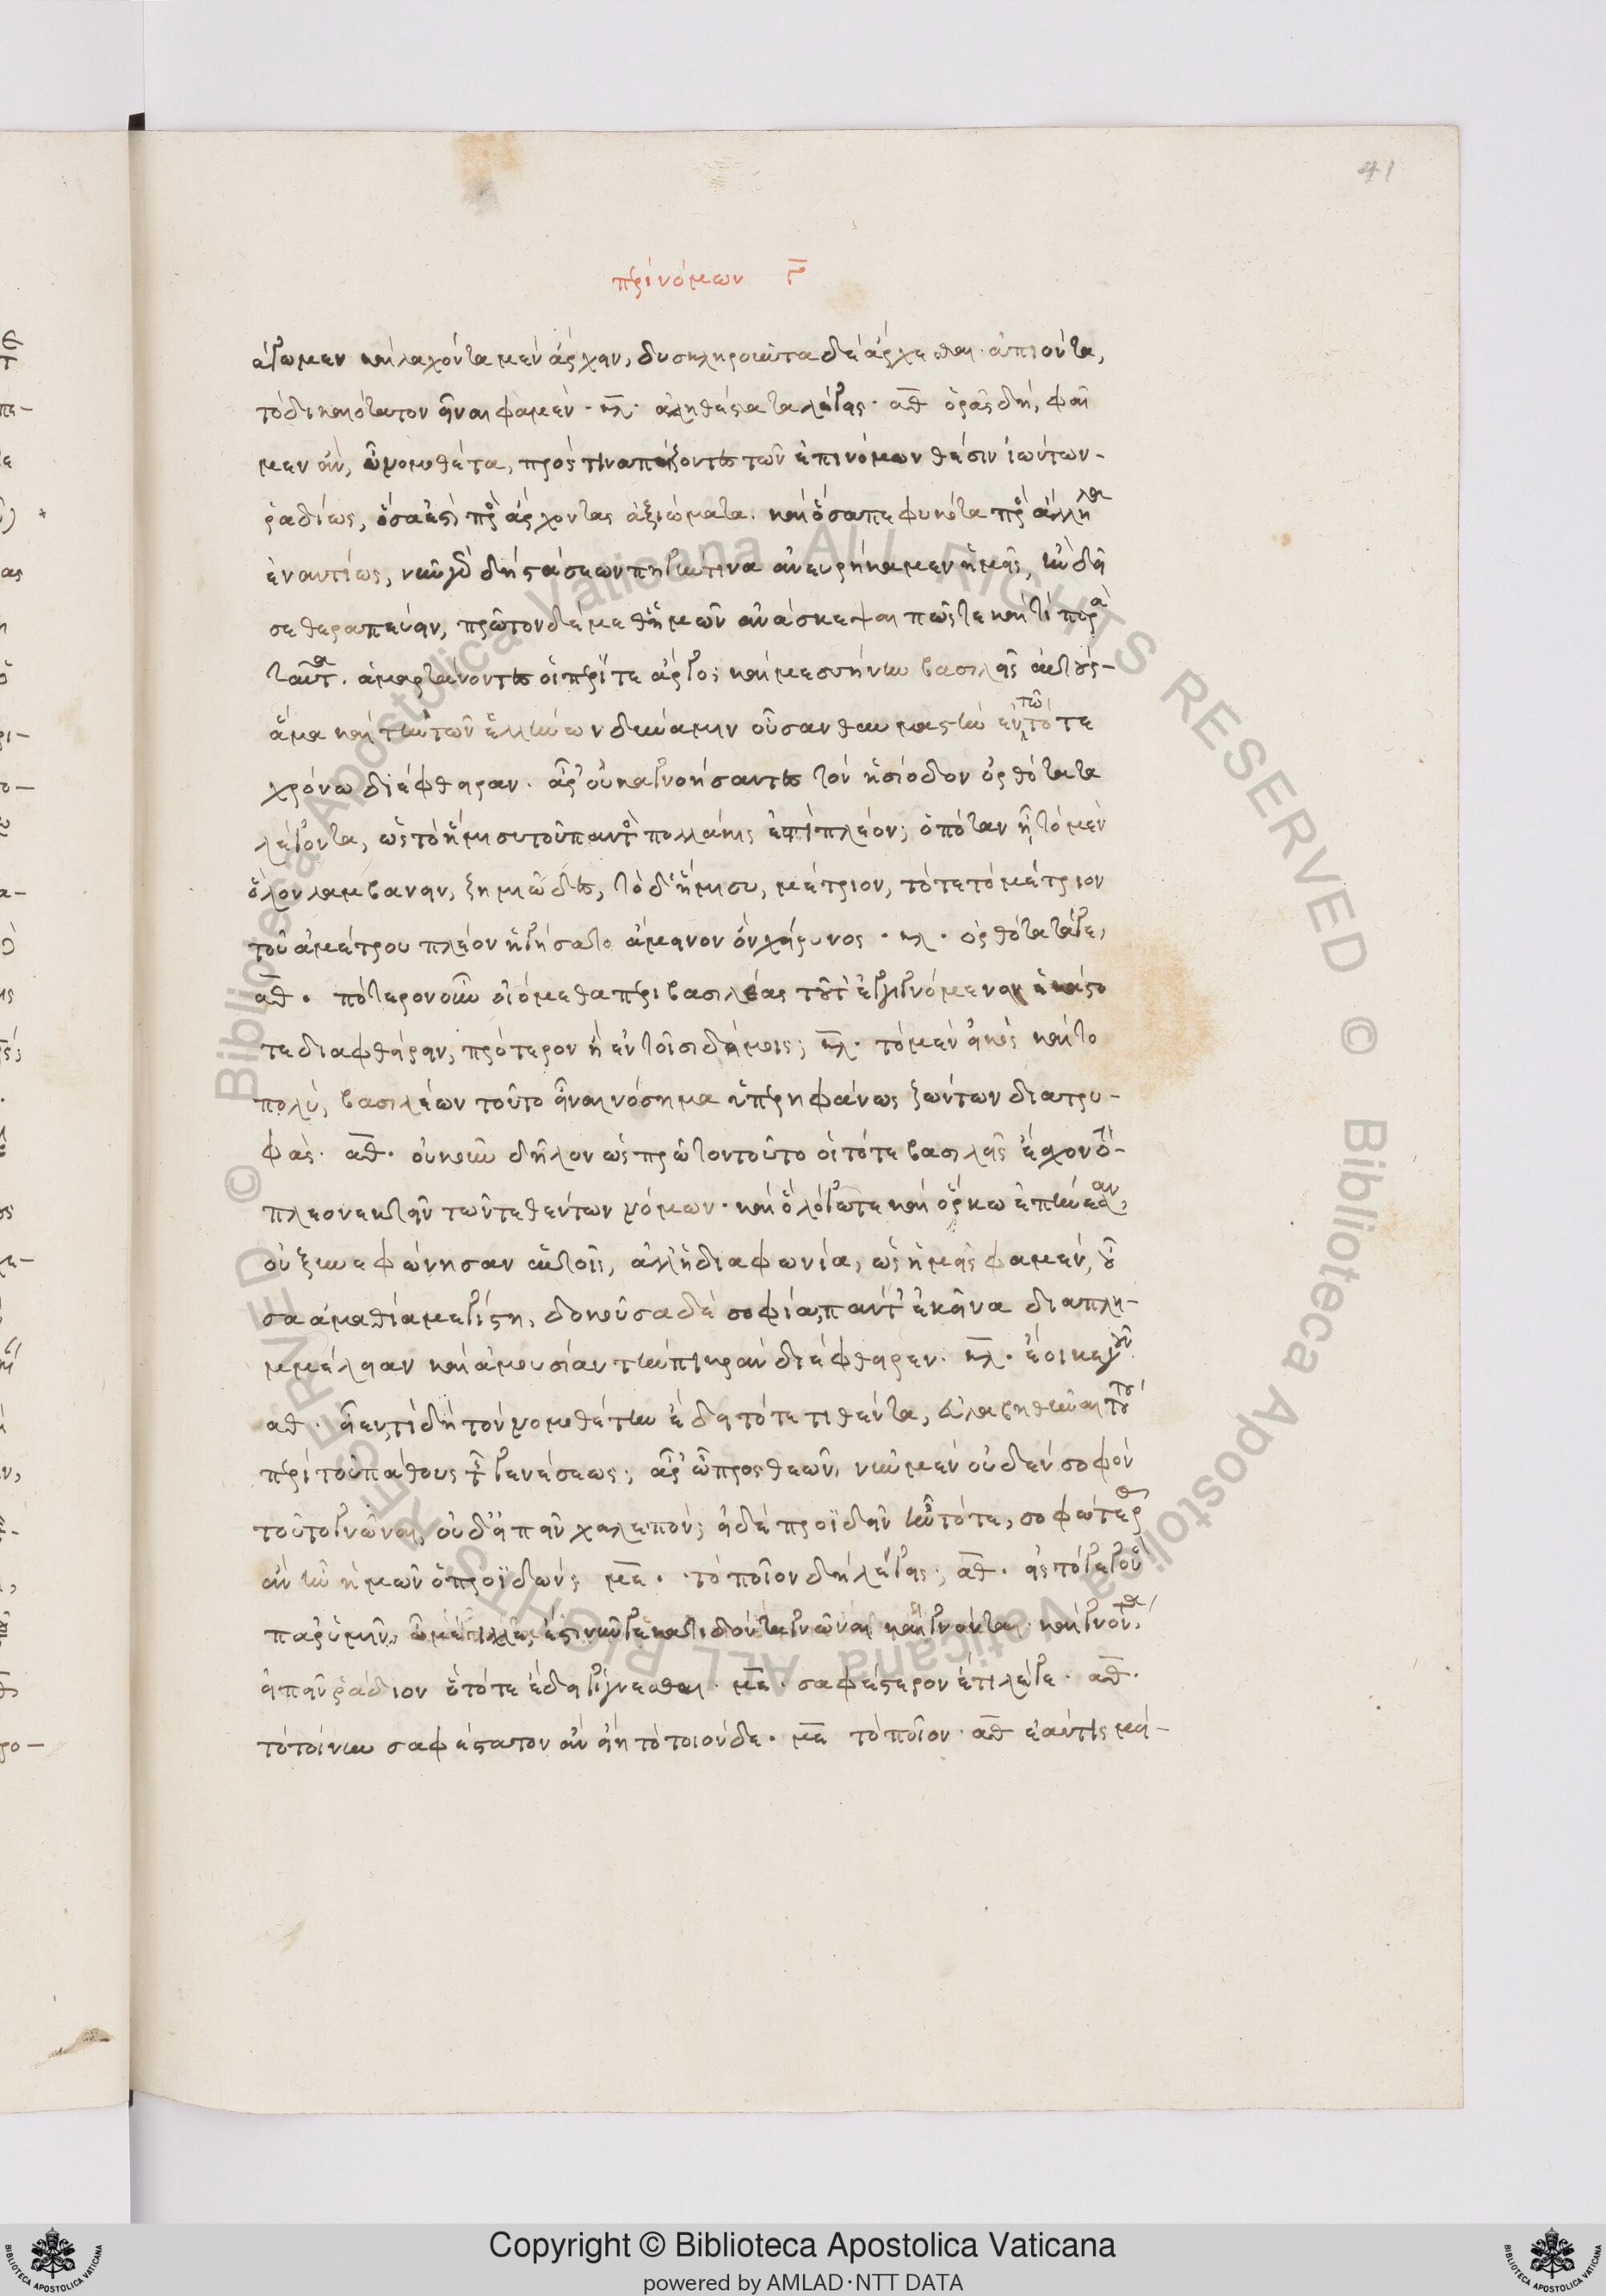 41
περὶ νόμων γ
άγωμεν καὶ λαχόντα μὲν ἄρχειν, δυσκληροῦντα δὲ ἄρχεσθαι ἀπιόντα,
τὸ δικαιότατον εἶναι φαμέν· κλ· ἀληθέστατα λέγεις· αθ ὁρᾷς δή, φαῖ
μεν ἄν, ὦ νομοθέτα, πρός τινα παίζοντες τῶν ἐπὶ νόμων θέσιν ἰόντων
ῥαδίως, ὅσα ἐστὶ πρὸς ἄρχοντας ἀξιώματα. καὶ ὅσα πεφυκότα πρὸς ἄλληλα
ἐναντίως, νῦν γὰρ δὴ στάσεων πηγήν τινα ἀνευρήκαμεν ἡμεῖς, ἣν δεῖ
σε θεραπεύειν, πρῶτον δὲ μεθ' ἡμῶν ἀνάσκεψαι πῶς τε καὶ τί παρὰ
ταῦτα. ἁμαρτάνοντες οἱ περί τε ἄργος καὶ μεσσήνην βασιλεῖς αὑτοὺς
ἅμα καὶ τὴν τῶν ἑλλήνων δύναμιν οὖσαν θαυμαστὴν ἐν τῷ τότε
χρόνω διέφθειραν. ἆρ' οὐκ ἀγνοήσαντες τὸν ἡσίοδον ὀρθότατα
λέγοντα, ὡς τὸ ἥμισυ τοῦ παντὸς πολλάκις ἐστὶ πλέον; ὁπόταν ᾖ τὸ μὲν
ὅλον λαμβάνειν, ζημιῶδες, τὸ δ' ἥμισυ, μέτριον, τότε τὸ μέτριον
τοῦ ἀμέτρου πλέον ἡγήσατο ἄμεινον ὂν χείρονος · κλ · ὀρθότατά γε,
αθ · πότερον οὖν οἰόμεθα περὶ βασιλέας τοῦτ' ἐγγιγνόμενον ἑκάστο
τε διαφθείρειν, πρότερον ἢ ἐν τοῖσι δήμοις; κλ· τὸ μὲν εἰκὸς καὶ το
πολὺ, βασιλέων τοῦτο εἶναι νόσημα ὑπερηφάνως ζώντων διατρυ-
φάς· αθ · οὐκοῦν δῆλον ὡς πρῶτον τοῦτο οἱ τότε βασιλεῖς ἔσχον τὸ
πλεονεκτεῖν τῶν τεθέντων νόμων· καὶ ὃ λόγωτε καὶ ὅρκω ἐπήνεσαν,
οὐ ξυνεφώνησαν αὑτοῖς, ἀλλ' ἡ διαφωνία, ὡς ἡμεῖς φαμέν, οὖ
σα ἀμαθία μεγίστη, δοκοῦσα δὲ σοφία, πάντ' ἐκεῖνα διὰ πλη-
μμέλειαν καὶ ἀμουσίαν τὴν πικρὰν διέφθειρεν. κλ · ἔοικε γοῦν
αθ · εἶεν, τί δὴ τὸν νομοθέτην ἔδει τότε τιθέντα, εὐλαβηθῆναι τούτου
περὶ τοῦ πάθους τῆς γενέσεως; ἆρ' ὦ προς θεῶν, νῦν μὲν οὐδὲν σοφὸν
τοῦτο γνῶναι, οὐδ' εἰπεῖν χαλεπόν; εἰ δὲ προϊδεῖν ἦν τότε, σοφώτερος
ἂν ἦν ἡμῶν ὁ προϊδών; με · τὸ ποῖον δὴ λέγεις; αθ · εἰς τὸ γεγονὸς
παρ' ὑμῖν, ὦ μέγιλλε, ἔστιν νῦν γε κατιδόντα γνῶναι καὶ γνόντα
εἰπεῖν ῥάδιον ὃ τότε ἔδει γίγνεσθαι · με · σαφέστερον ἔτι λέγε · αθ ·
τὸ τοίνυν σαφέστατον ἂν εἴη τὸ τοιόνδε · με τὸ ποῖον· αθ ἐάν τις μεί-
Copyright © Biblioteca Apostolica Vaticana
powered by AMLAD·NTT DATA